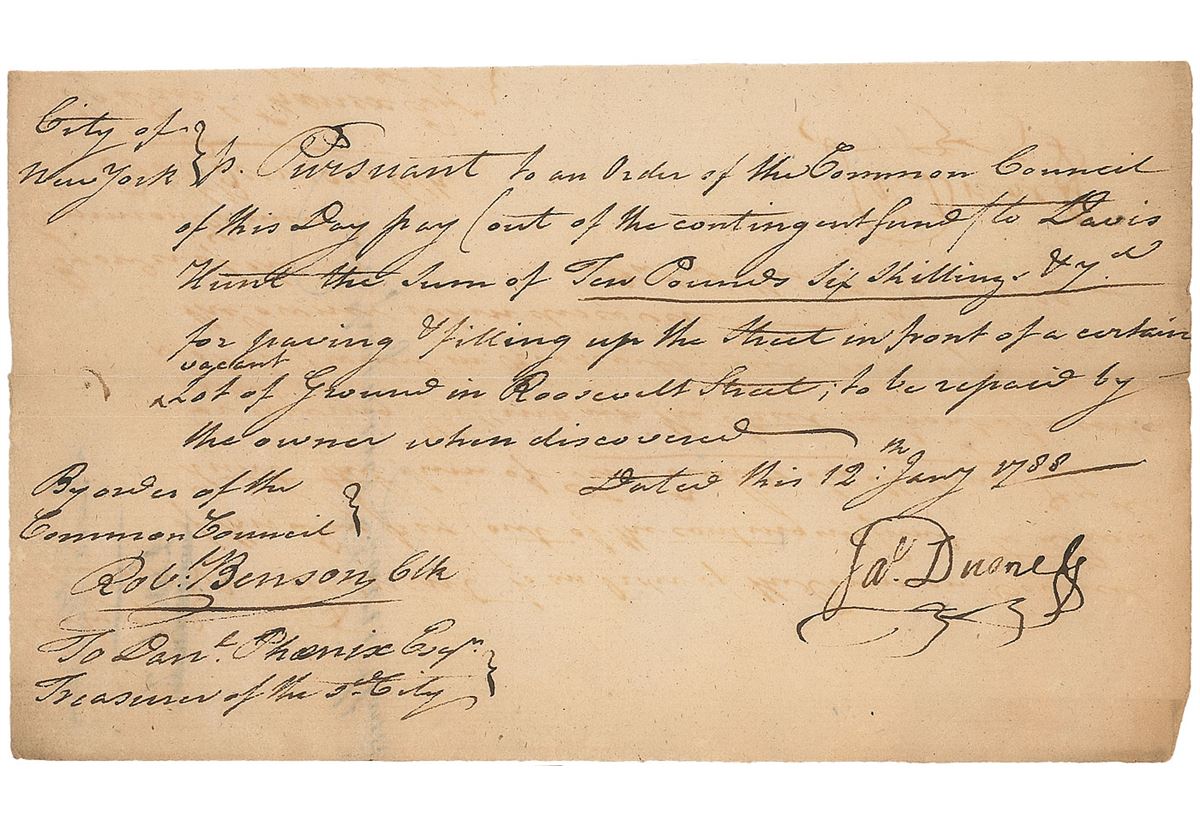 City of
New York } ss. Pursuant to an Order of the Common Council
of this Day pay (out of the contingent fund) to Davis
Hunt the sum of Ten Pounds six shillings & 7.d
for paving & filling up the Street in front of a certain
vacant
^Lot of Ground in Roosevelt Street; to be repaid by
the owner when discovered
Dated this 12.th Jany 1788
By order of the
Common Council }
Rob.t Benson Clk
Ja.s Duane
To Dan.l Phœnix Esq.r
Treasurer of the s.d City }